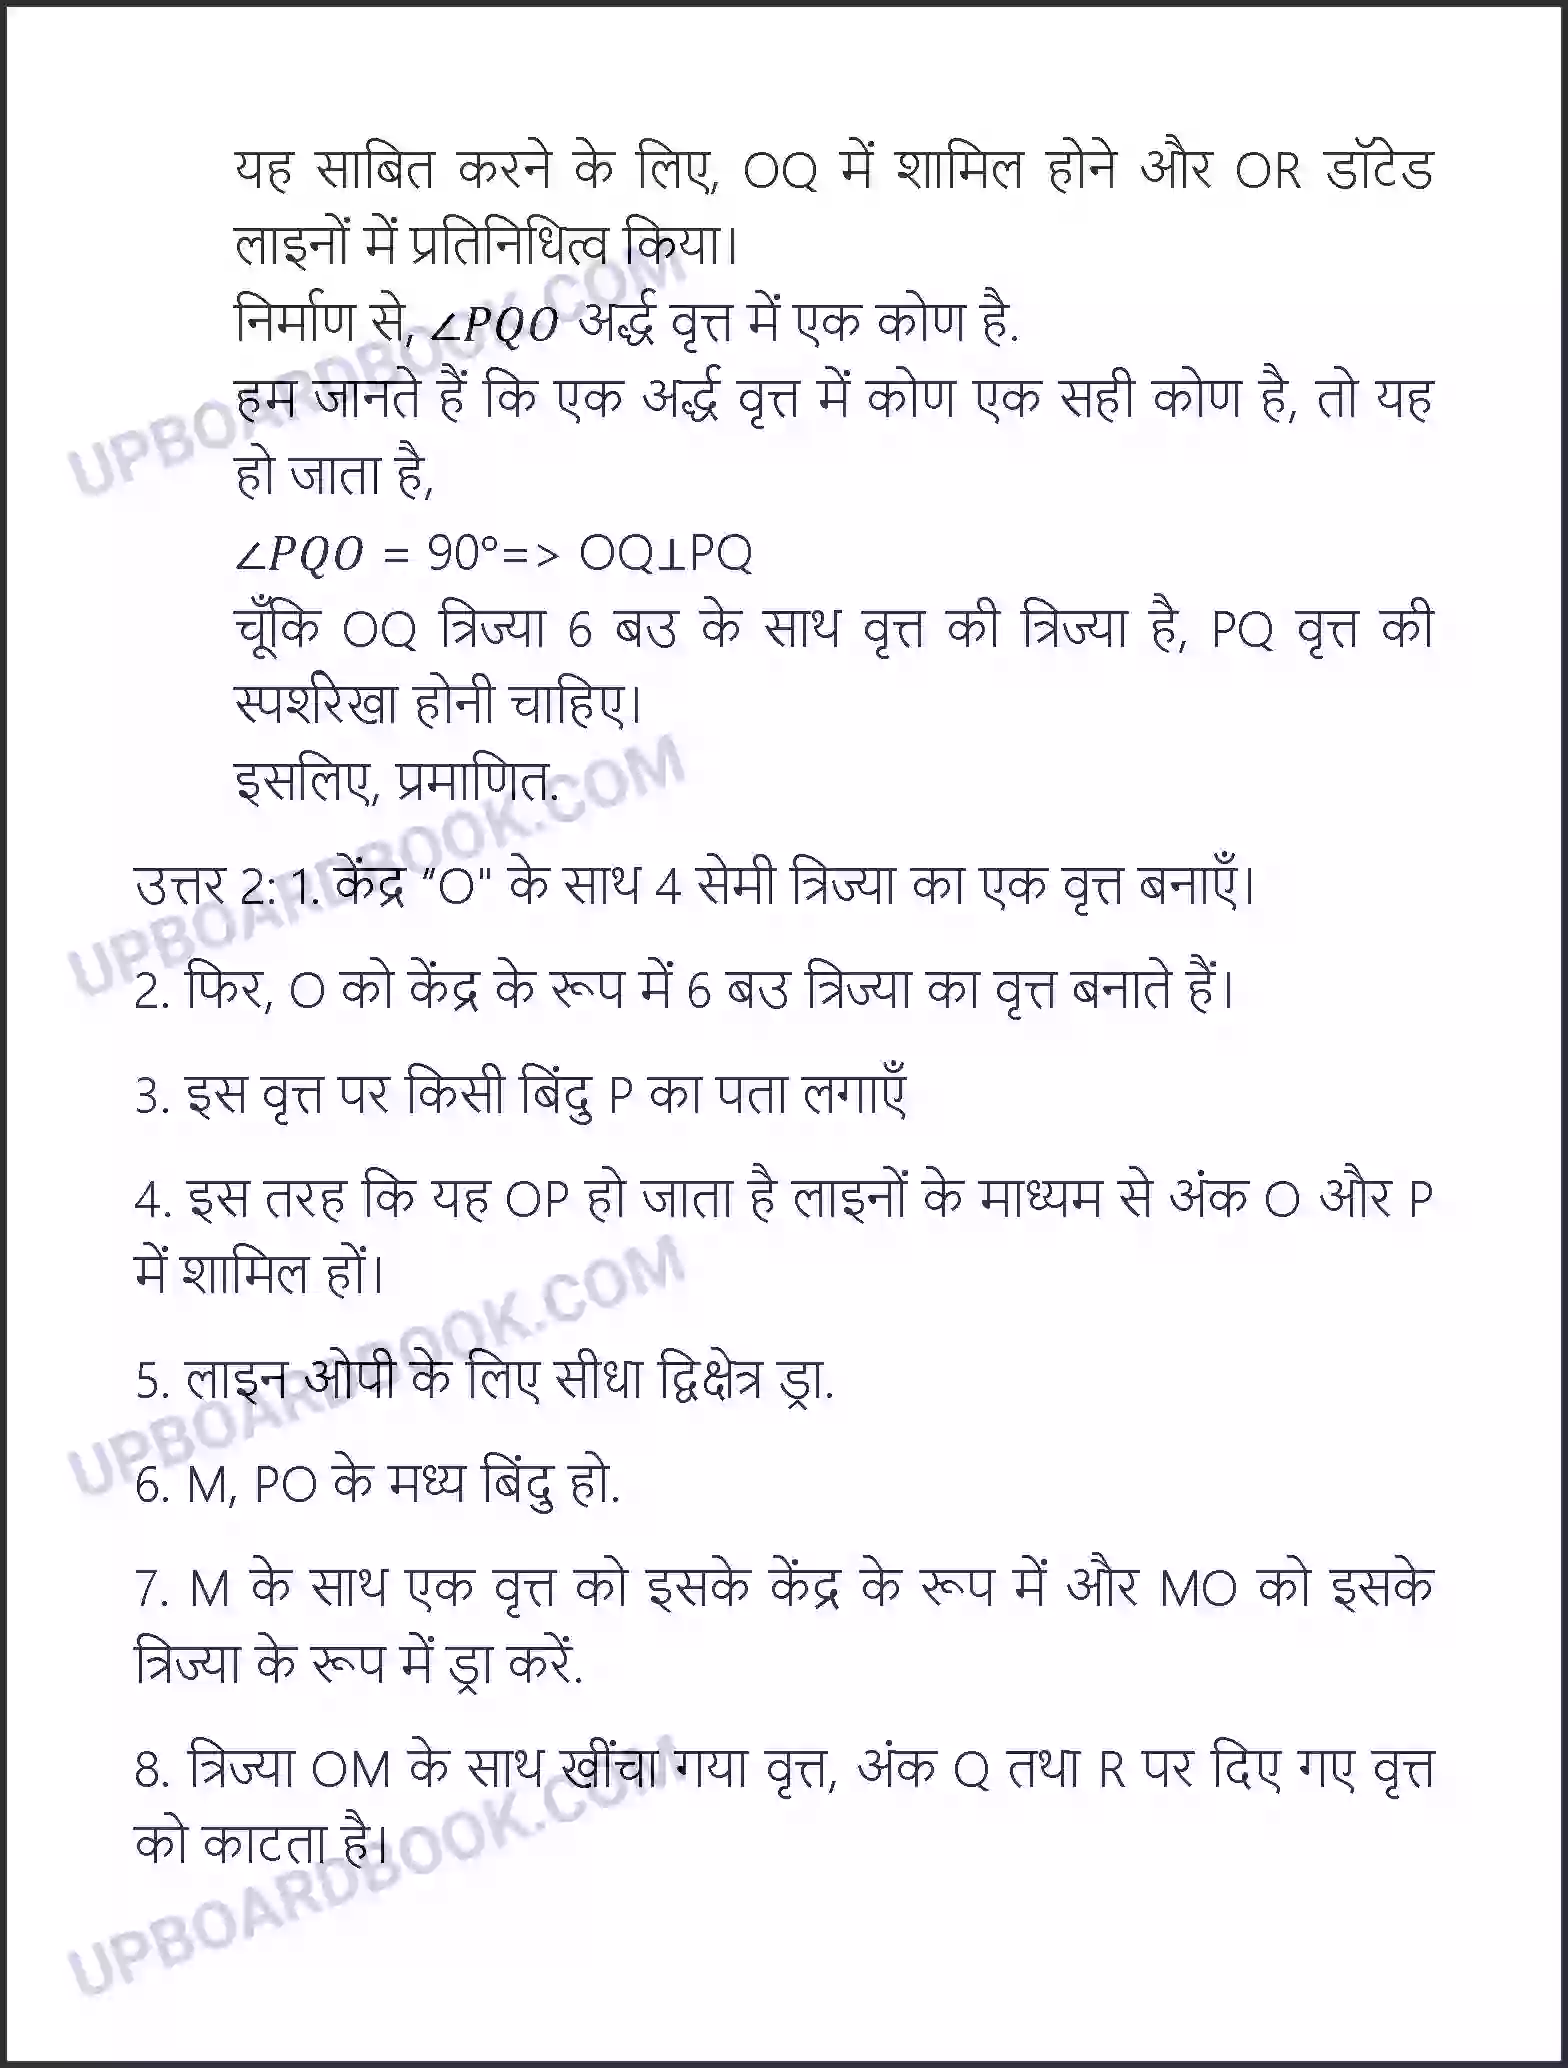 यह साबित करने के लिए, OQ में शामिल होने और OR डॉटेड
लाइनों में प्रतिनिधित्व किया।
निर्माण से, ∠PQO अर्द्ध वृत्त में एक कोण है.
हम जानते हैं कि एक अर्द्ध वृत्त में कोण एक सही कोण है, तो यह
हो जाता है,
∠PQO = 90°=> OQ⊥PQ
चूँकि OQ त्रिज्या 6 बउ के साथ वृत्त की त्रिज्या है, PQ वृत्त की
स्पर्शरेखा होनी चाहिए।
इसलिए, प्रमाणित.
उत्तर 2: 1. केंद्र “O" के साथ 4 सेमी त्रिज्या का एक वृत्त बनाएँ।
2. फिर, O को केंद्र के रूप में 6 बउ त्रिज्या का वृत्त बनाते हैं।
3. इस वृत्त पर किसी बिंदु P का पता लगाएँ
4. इस तरह कि यह OP हो जाता है लाइनों के माध्यम से अंक O और P
में शामिल हों।
5. लाइन ओपी के लिए सीधा द्विक्षेत्र ड्रा.
6. M, PO के मध्य बिंदु हो.
7. M के साथ एक वृत्त को इसके केंद्र के रूप में और MO को इसके
त्रिज्या के रूप में ड्रा करें.
8. त्रिज्या OM के साथ खींचा गया वृत्त, अंक Q तथा R पर दिए गए वृत्त
को काटता है।
UPBOARDBOOK.COM
UPBOARDBOOK.COM
UPBOARDBOOK.COM
UPBOARDBOOK.COM